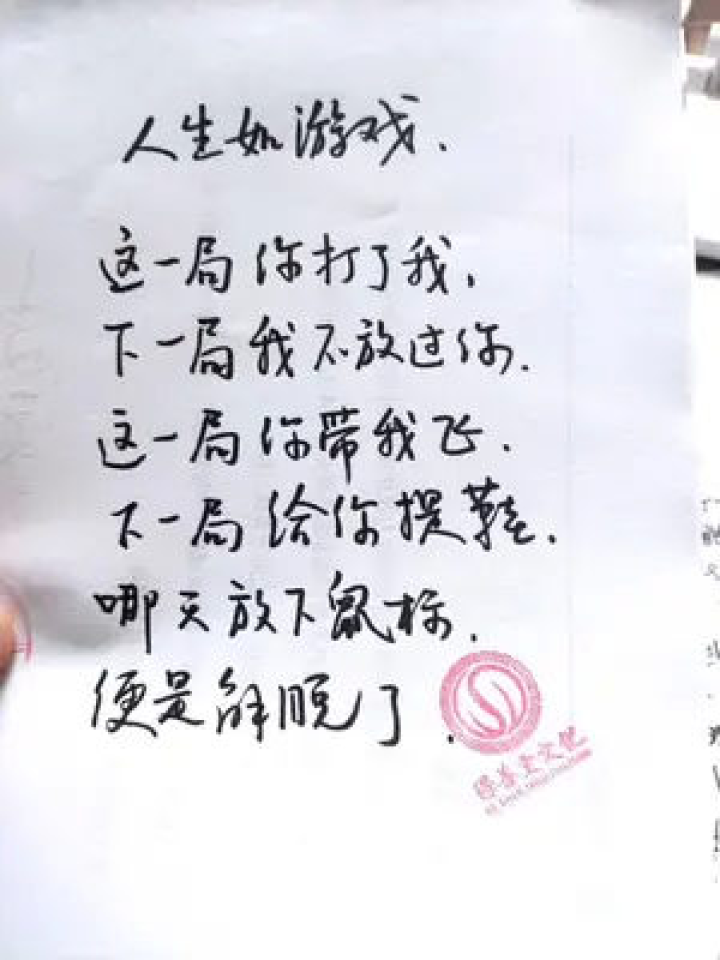 人生如游戏.
这一局你打了我,
下一局我不放过你.
这一局你带我飞.
下一局给你提鞋.
哪天放下鼠标.
便是解脱了.